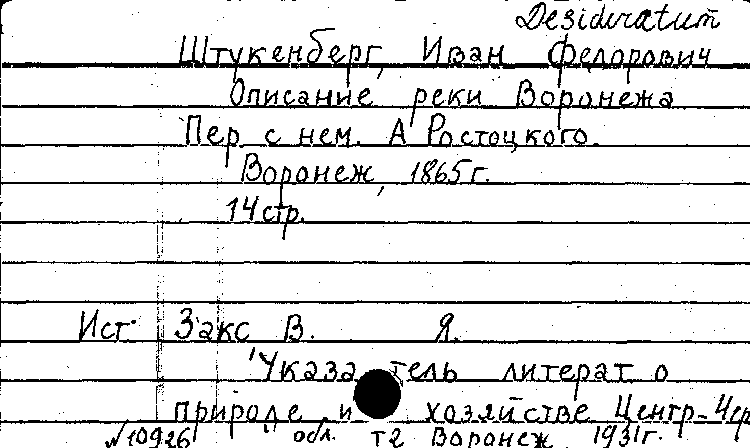 Desideratum
Штукенберг, Иван Федорович
Описание реки Воронежа
Пер с нем. А Ростоцкого.
Воронеж, 1865 г.
14 стр.
Ист. Закс В. Я.
"Указатель литерат о
природе и хозяйстве Центр-Чер
√10926 обл. т 2 Воронеж 1931 г.